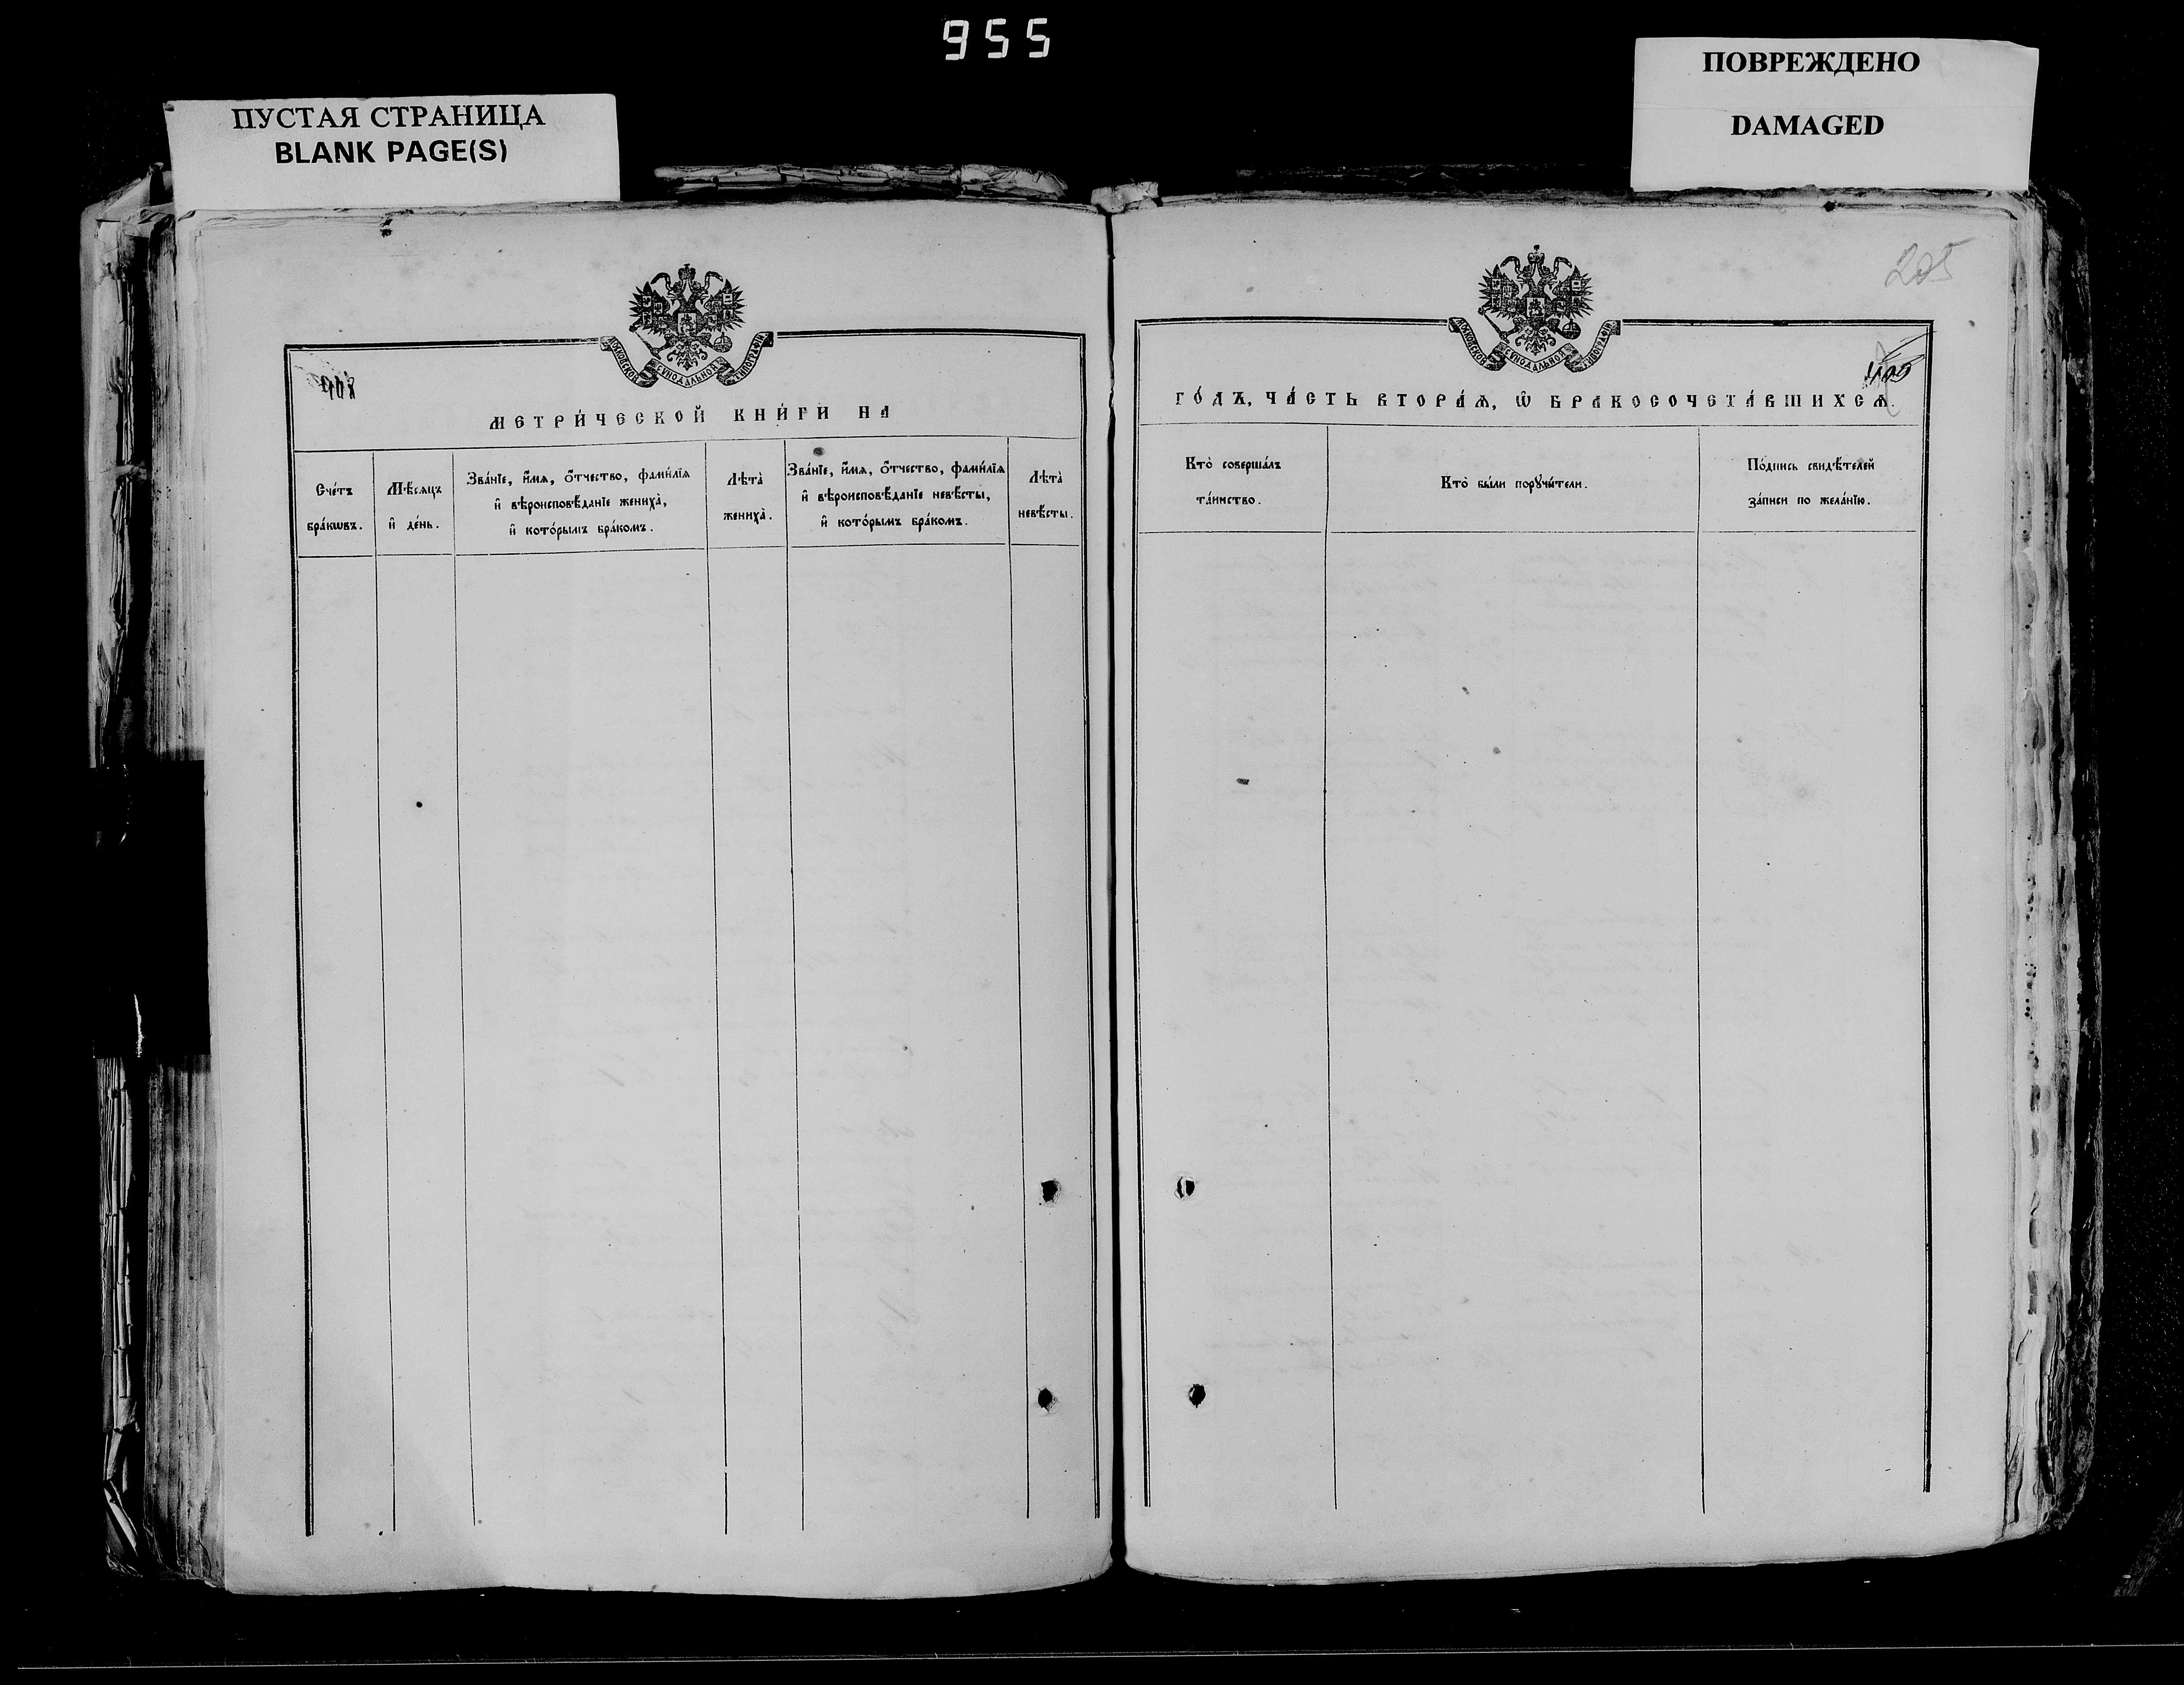 955
ПУСТАЯ СТРАНИЦА
BLANK PAGE(S)
ПОВРЕЖДЕНО
DAMAGED
МОСКОВСКОЙ СѴНОДАЛЬНОЙ ТИПОГРАФІИ
МЕТРИ́ЧЕСКОЙ КНИ́ГИ НА
Сче́тъ
бра́кѡвъ.
Мѣ́сяцъ
и҆ де́нь.
Зва́нїе, и҆́мѧ, ѻ҆́тчество, фами́лїѧ
и҆ вѣроисповѣ́данїе жениха̀,
и҆ кото́рымъ бра́комъ.
Лѣта̀
жениха̀.
Зва́нїе, и҆́мѧ, ѻ҆́тчество, фами́лїѧ
и҆ вѣроисповѣ́данїе невѣ́сты,
и҆ кото́рымъ бра́комъ.
Лѣта̀
невѣ́сты.
205
МОСКОВСКОЙ СѴНОДАЛЬНОЙ ТИПОГРАФІИ
ГО́ДЪ, ЧА́СТЬ ВТОРА́Ѧ, Ѡ҆ БРАКОСОЧЕТА́ВШИХСѦ.
Кто̀ соверша́лъ
та́инство.
Кто̀ бы́ли порꙋчи́тели.
По́дпись свидѣ́телей
за́писи по жела́нїю.